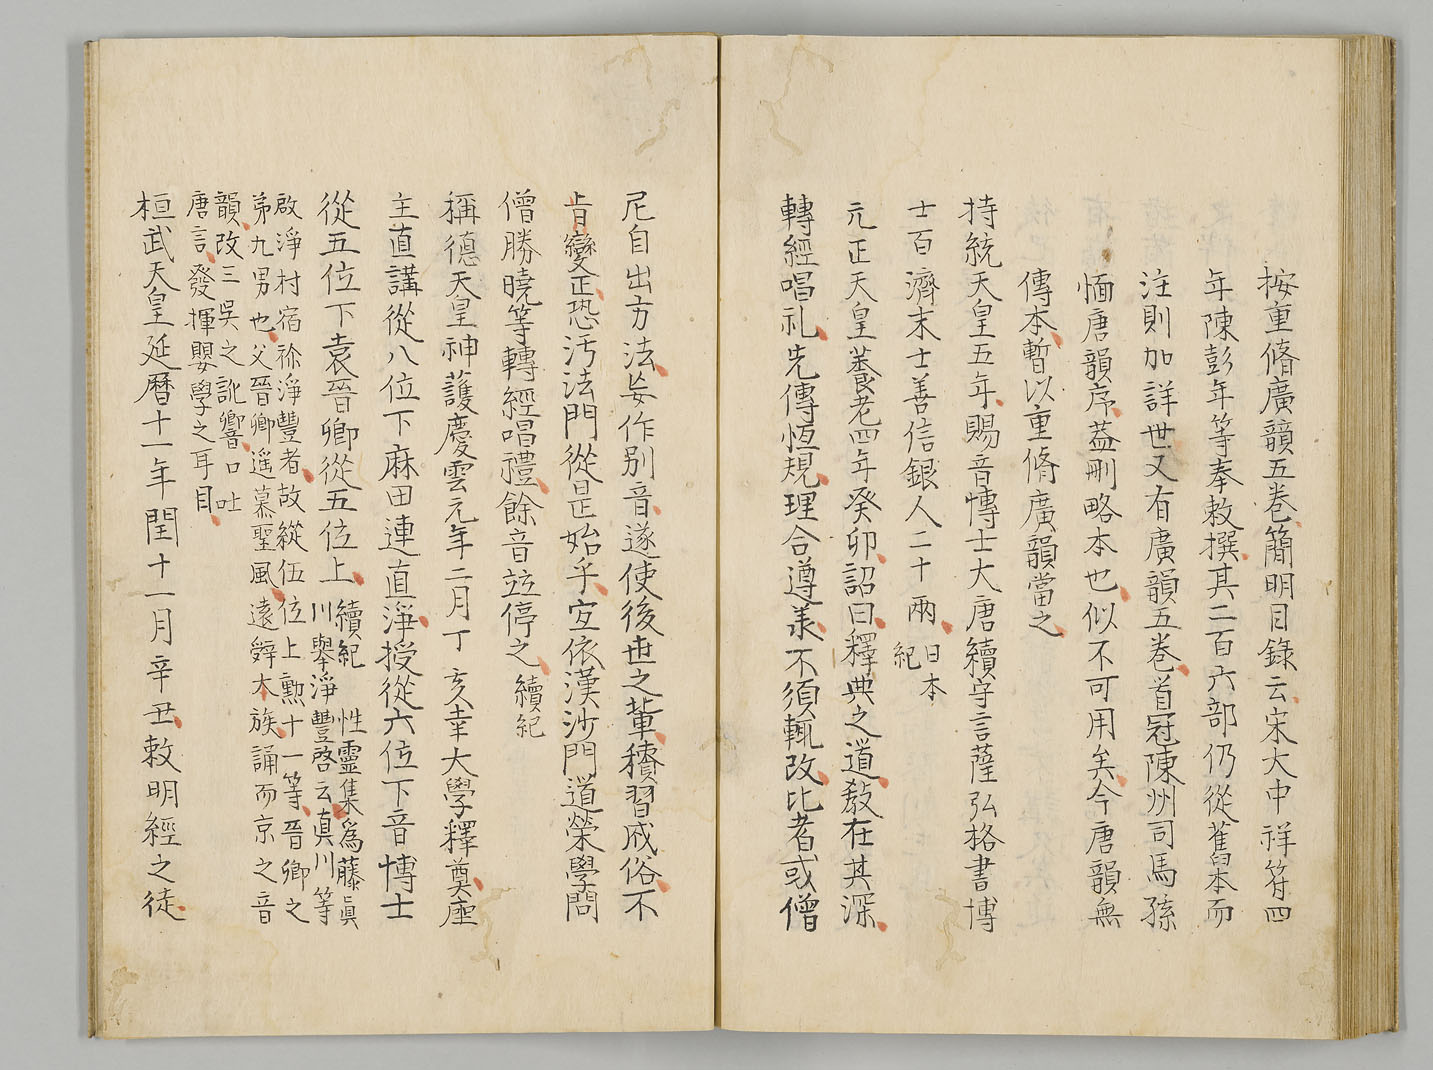 按重脩廣韻五卷簡明目錄云宋大中祥符四
年陳彭年等奉敕撰其二百六部仍從舊本而
注則加詳世又有廣韻五卷首冠陳州司馬孫
愐唐韻序葢刪略本也似不可用矣今唐韻無
傳本暫以重脩廣韻當之
持統天皇五年賜音愽士大唐續守言薩弘格書博
士百濟末士善信銀人二十兩
日本
紀
元正天皇養老四年癸卯詔曰釋典之道教在其深
轉經唱礼先傳恆規理合遵承不須輒改比者或僧
尼自出方法妄作別音遂使後世之輩積習成俗不
肯變正恐汚法門從是始乎宜依漢沙門道榮學問
僧勝曉等轉經唱禮餘音竝停之
續紀
稱德天皇神護慶雲元年二月丁亥幸大學釋奠座
主直講從八位下麻田連直淨授從六位下音博士
從五位下袁晉卿從五位上
續紀 性靈集爲藤眞
川擧淨豐啓云眞川等
啟淨村宿祢淨豐者故從伍位上勲十一等晉卿之
弟九男也父晉卿遙慕聖風遠辭本族誦兩京之音
韻改三吳之訛響口吐
唐言發揮嬰學之耳目
桓武天皇延暦十一年閏十一月辛丑敕明經之徒